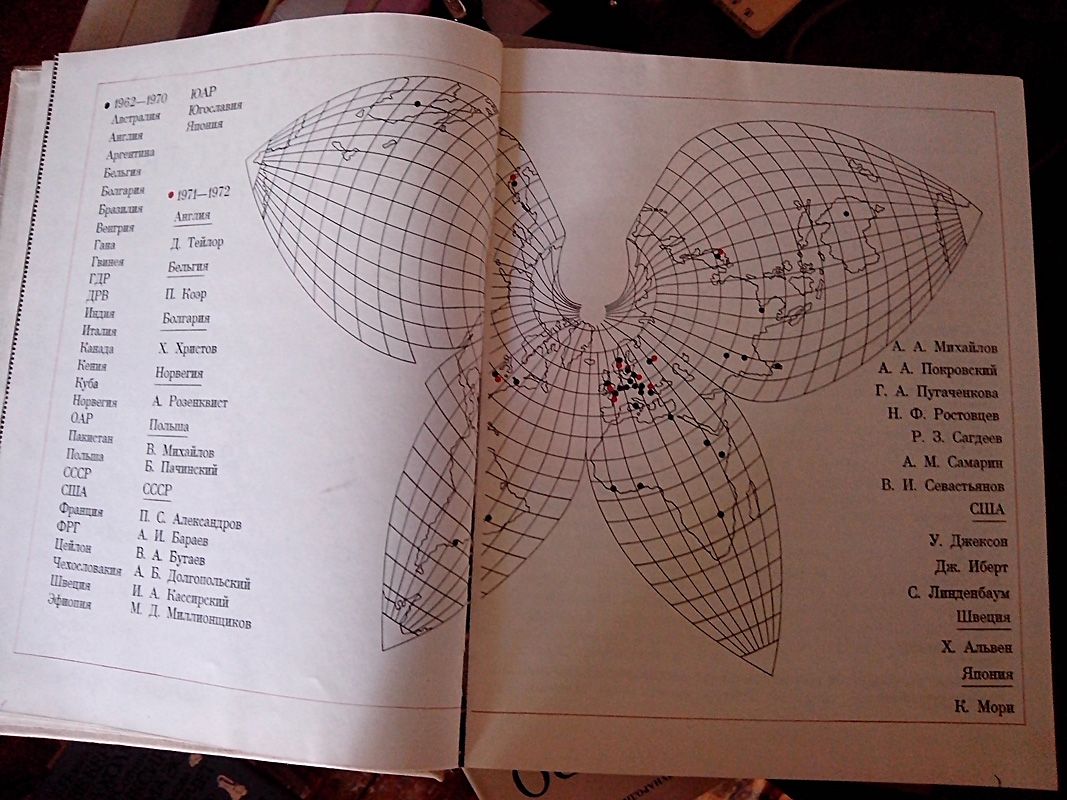 1962—1970
Австралия
Англия
Аргентина
Бельгия
Болгария
Бразилия
Венгрия
Гана
Гвинея
ГДР
ДРВ
Индия
Италия
Канада
Кения
Куба
Норвегия
ОАР
Пакистан
Польша
СССР
США
Франция
ФРГ
Цейлон
Чехословакия
Швеция
Эфиопия
ЮАР
Югославия
Япония
1971—1972
Англия
Д. Тейлор
Бельгия
П. Коэр
Болгария
Х. Христов
Норвегия
А. Розенквист
Польша
В. Михайлов
Б. Пачинский
СССР
П. С. Александров
А. И. Бараев
В. А. Бугаев
А. Б. Долгопольский
И. А. Кассирский
М. Д. Миллионщиков
А. А. Михайлов
А. А. Покровский
Г. А. Пугаченкова
Н. Ф. Ростовцев
Р. З. Сагдеев
А. М. Самарин
В. И. Севастьянов
США
У. Джексон
Дж. Иберт
С. Линденбаум
Швеция
Х. Альвен
Япония
К. Мори